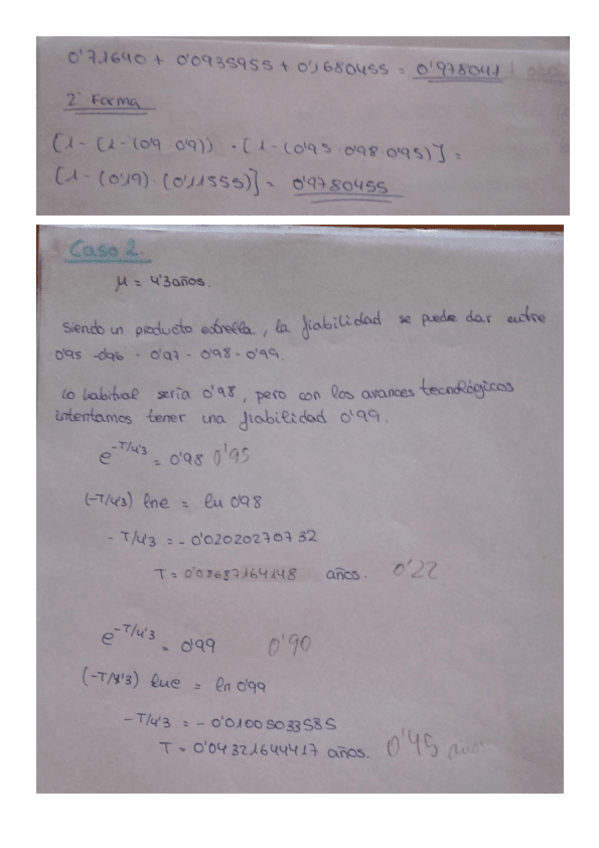 0'71640 + 0'0935955 + 0'1680455 = 0'978041
2ª Forma
[1-(1-(0'9 0'9)) · [1-(0'95·0'98·0'95)] =
[1-(0'19)·(0'11555)] = 0'9780455
Caso 2.
μ = 4'3 años.
Siendo un producto estrella, la fiabilidad se puede dar entre
0'95 - 0'96 - 0'97 - 0'98 - 0'99.
Lo habitual sería 0'98, pero con los avances tecnológicos
intentamos tener una fiabilidad 0'99.
e^-T/4'3 = 0'98 0'95
(-T/4'3) lne = ln 0'98
-T/4'3 = -0'02020270732
T = años. 0'22
e^-T/4'3 = 0'99 0'90
(-T/4'3) lne = ln 0'99
-T/4'3 = -0'01005033585
T = 0'04321644417 años. 0'45